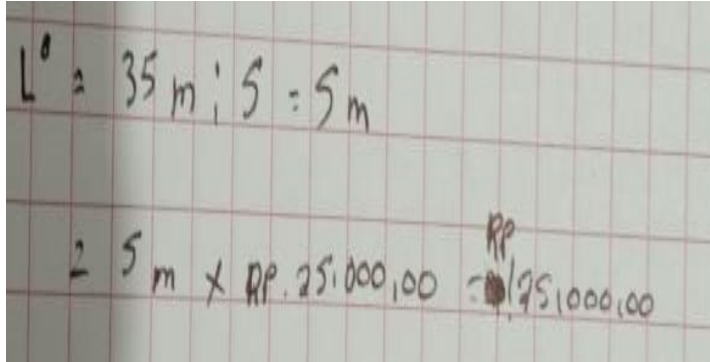 L° = 35 m : 5 = 5 m
= 5 m x RP. 25.000,00 = RP 125,000,00